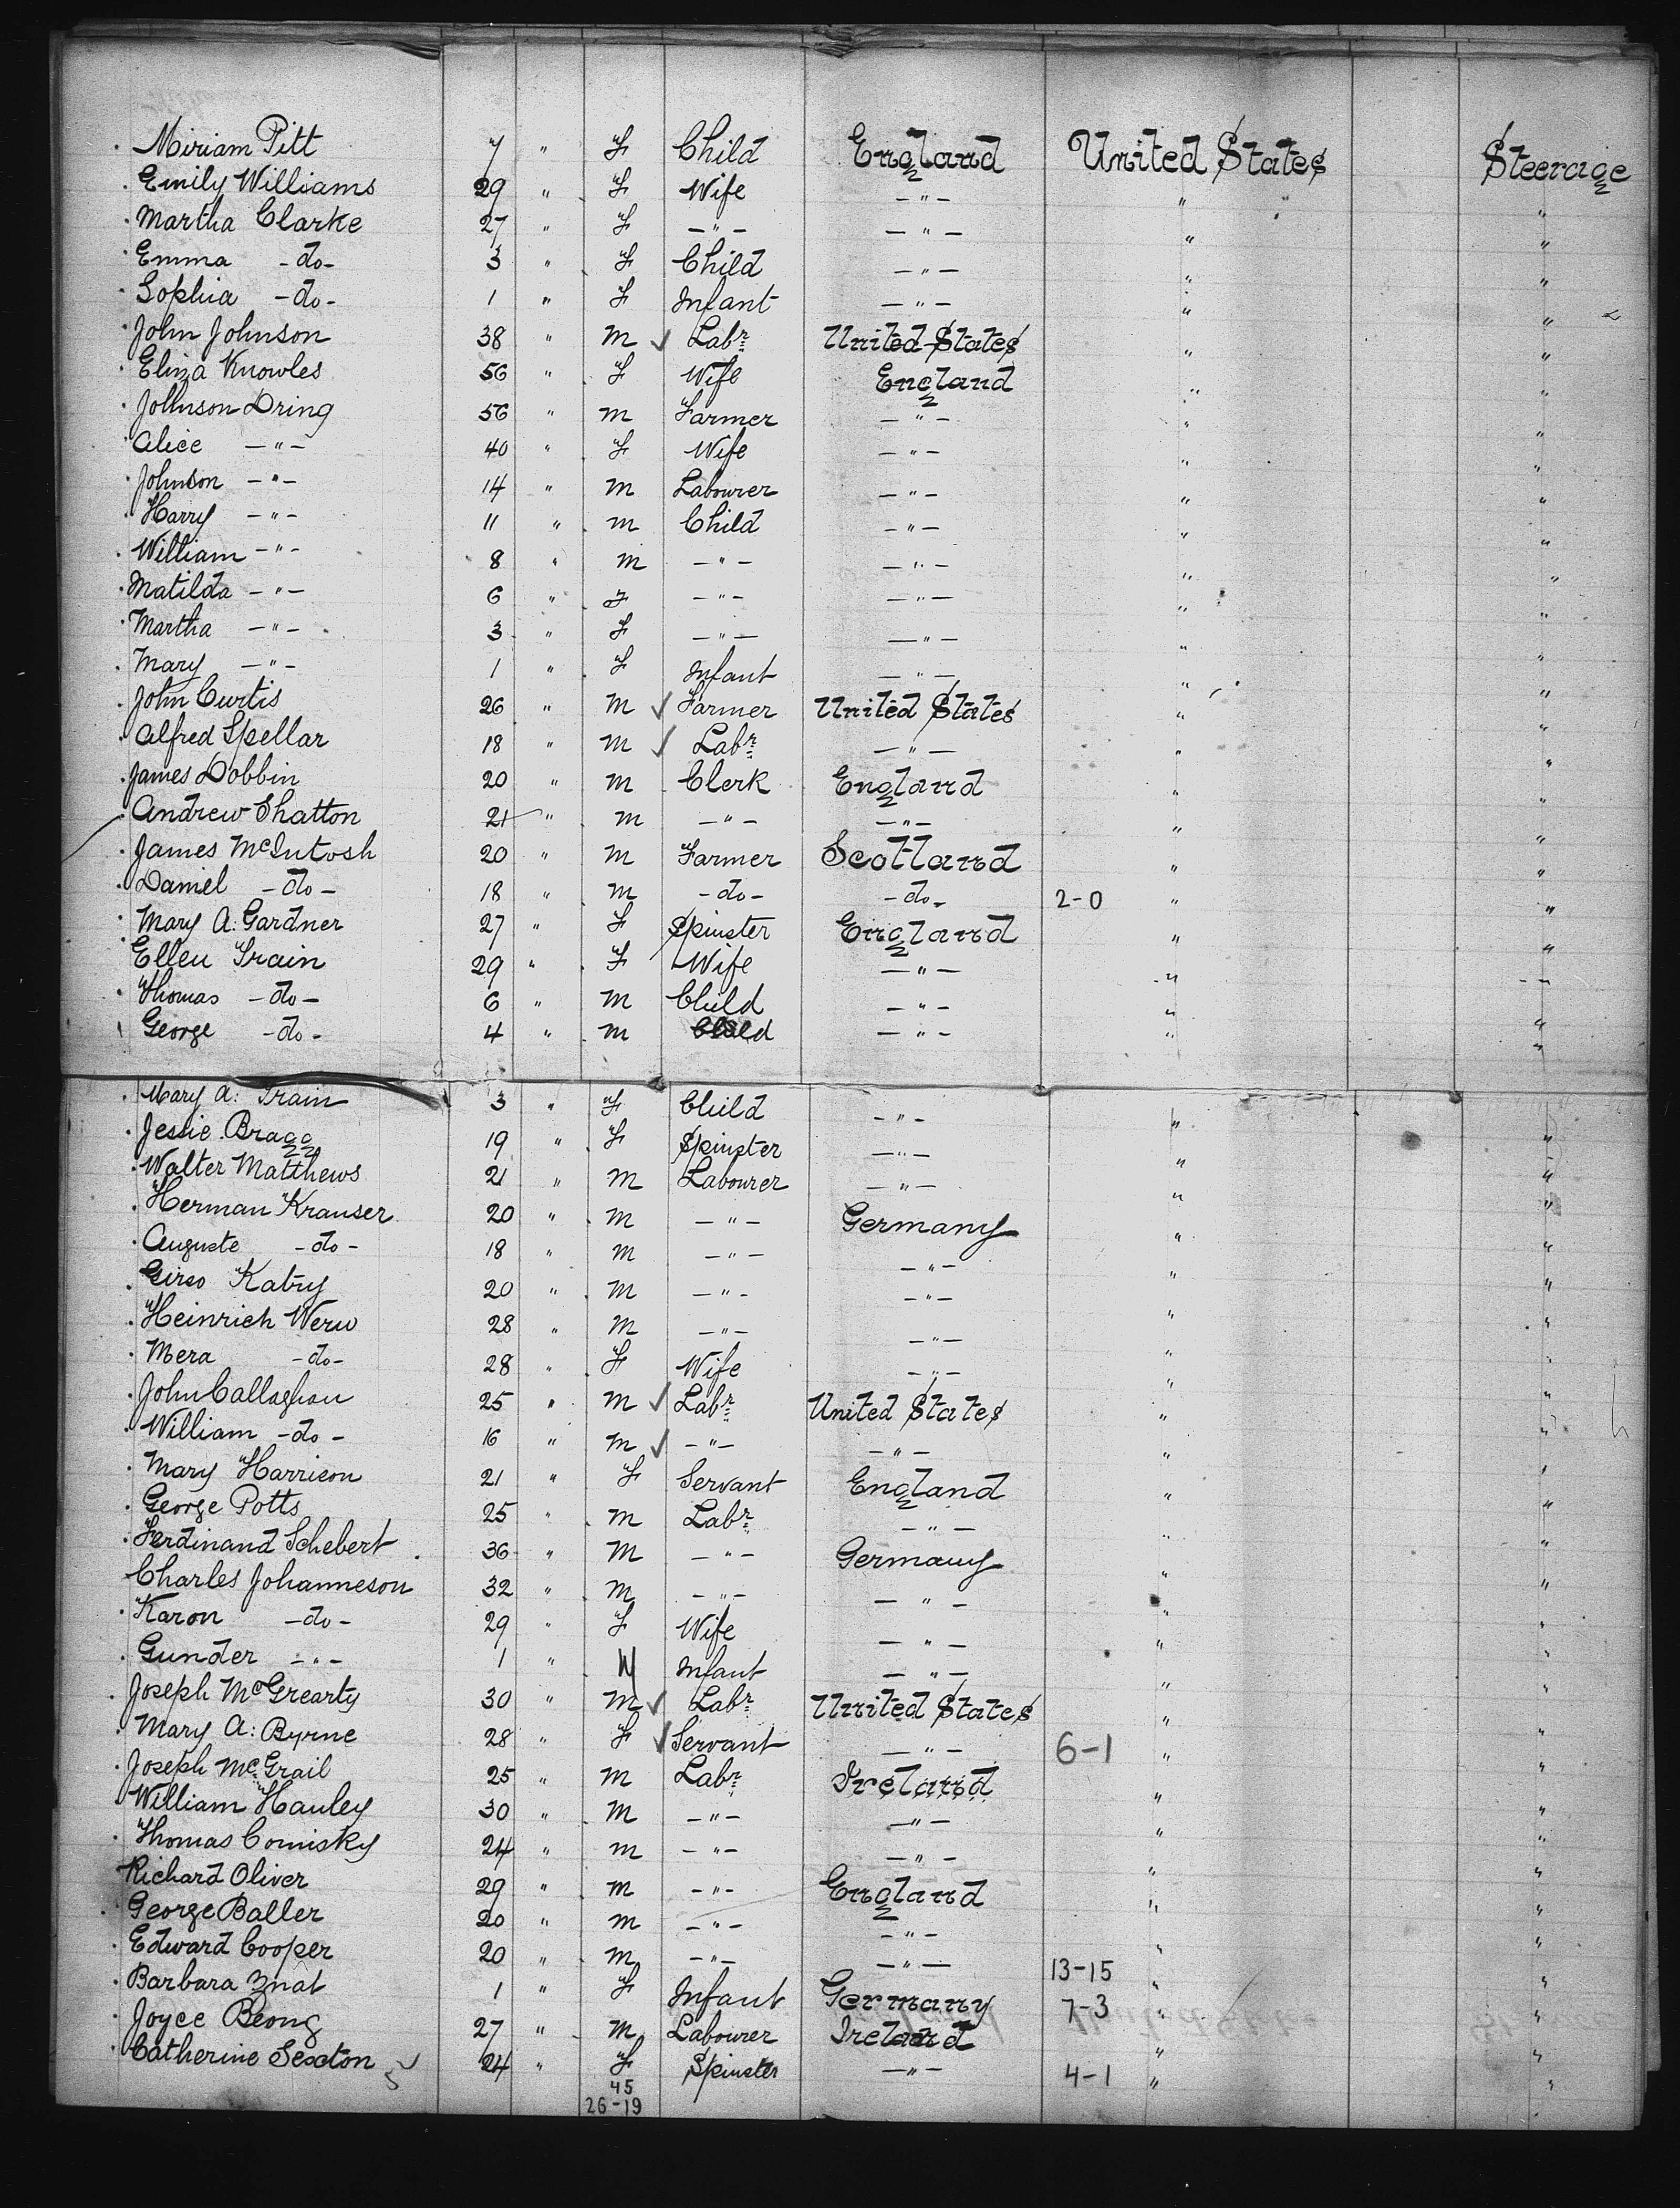 Miriam Pitt 7 " F Child England United States Steerage
Emily Williams 29 " F Wife - " - " "
Martha Clarke 27 " F - " - - " - " "
Emma - do - 3 " F Child - " - " "
Sophia - do - 1 " F Infant - " - " "
John Johnson 38 " M ✓ Labr United States " "
Eliza Knowles 56 " F Wife England " "
Johnson Dring 56 " M Farmer - " - " "
Alice - " - 40 " F Wife - " - " "
Johnson - " - 14 " M Labourer - " - " "
Harry - " - 11 " M Child - " - " "
William - " - 8 " M - " - - " - " "
Matilda - " - 6 " F - " - - " - " "
Martha - " - 3 " F - " - - " - " "
Mary - " - 1 " F Infant - " - " "
John Curtis 26 " M ✓ Farmer United States " "
Alfred Spellar 18 " M ✓ Labr - " - " "
James Dobbin 20 " M Clerk England " "
Andrew Shatton 21 " M - " - - " - " "
James McIntosh 20 " M Farmer Scotland " "
Daniel - do - 18 " M - do - - do - 2-0 " "
Mary A. Gardner 27 " F Spinster England " "
Ellen Train 29 " F Wife - " - " "
Thomas - do - 6 " M Child - " - " "
George - do - 4 " M Child - " - " "
Mary A: Train 3 " F Child - " - " "
Jessie Bragg 19 " F Spinster - " - " "
Walter Matthews 21 " M Labourer - " - " "
Herman Krauser 20 " M - " - Germany " "
Auguste - do - 18 " M - " - - " - " "
Katry 20 " M - " - - " - " "
Heinrich Weru 28 " M - " - - " - " "
Mera - do - 28 " F Wife - " - " "
John Callaghan 25 " M ✓ Labr United States " "
William - do - 16 " M ✓ - " - - " - " "
Mary Harrison 21 " F Servant England " "
George Potts 25 " M Labr - " - " "
Ferdinand Schebert 36 " M - " - Germany " "
Charles Johanneson 32 " M - " - - " - " "
Karon - do - 29 " F Wife - " - " "
Gunder - " - 1 " M Infant - " - " "
Joseph McGrearty 30 " M ✓ Labr United States " "
Mary A: Byrne 28 " F ✓ Servant - " - 6-1 " "
Joseph McGrail 25 " M Labr Ireland " "
William Hanley 30 " M - " - - " - " "
Thomas Comisky 24 " M - " - - " - " "
Richard Oliver 29 " M - " - England " "
George Baller 20 " M - " - - " - " "
Edward Cooper 20 " M - " - - " - 13-15 " "
Barbara Znat 1 " F Infant Germany 7-3 " "
Joyce Beong 27 " M Labourer Ireland " "
Catherine Sexton 24 " F Spinster - " - 4-1 " "
45
26-19